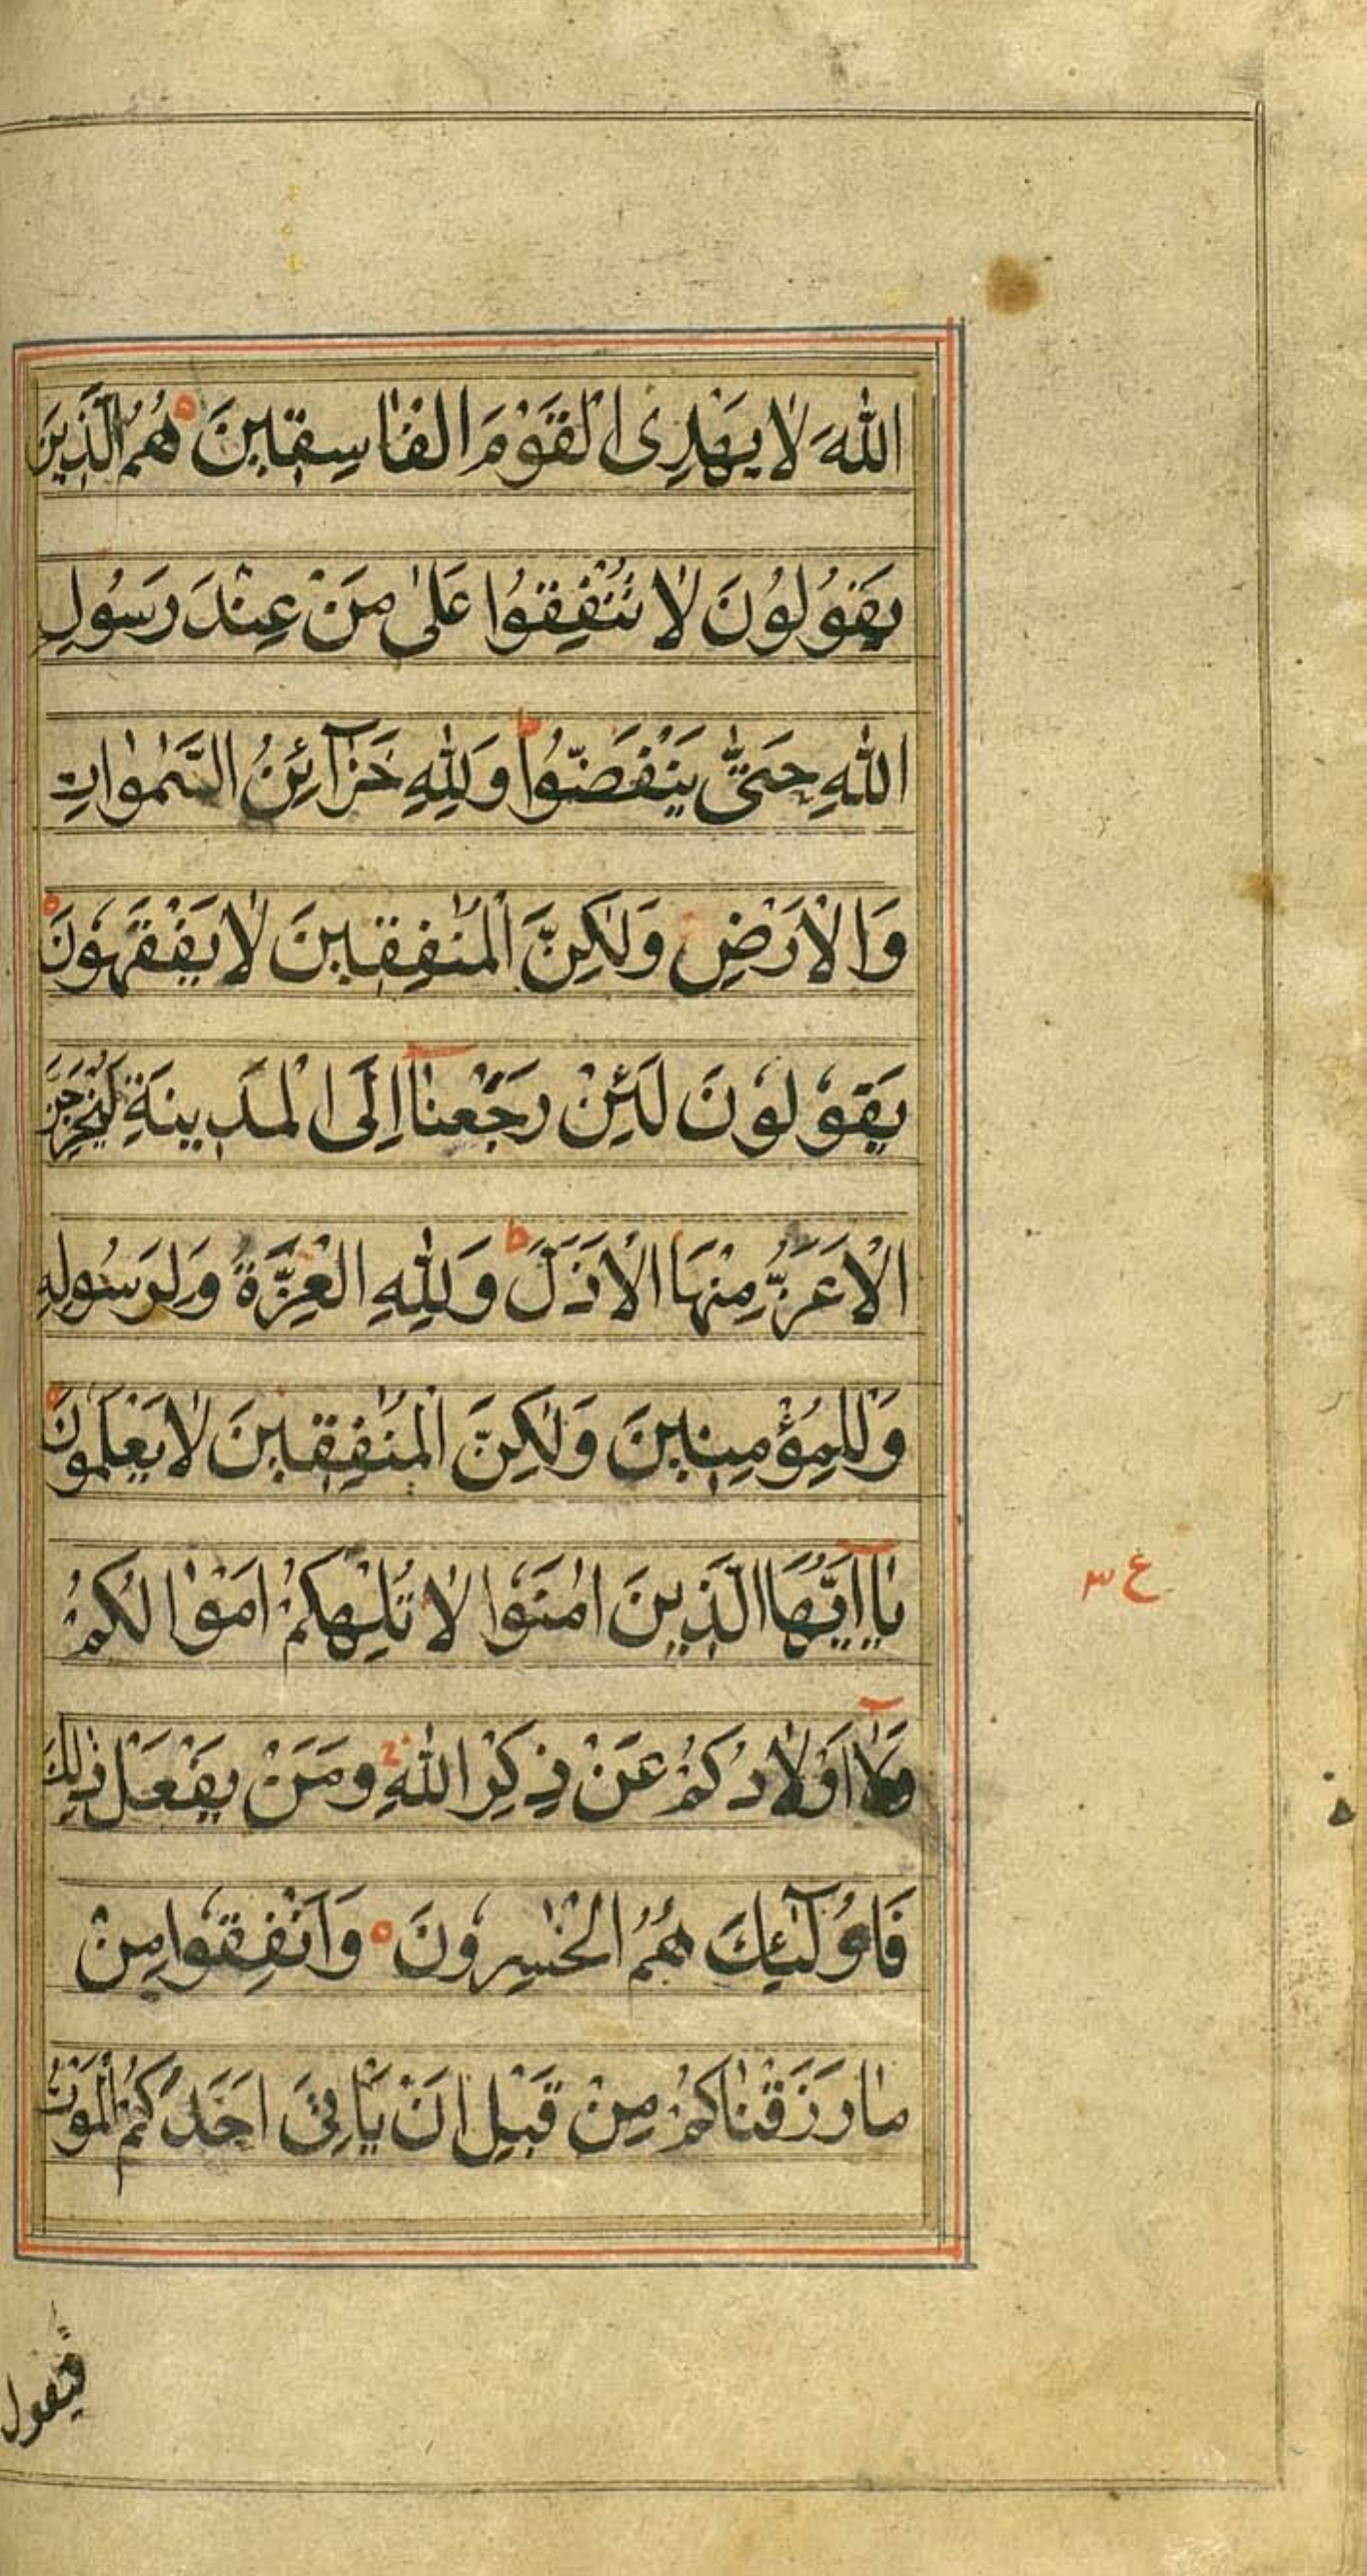 اللهَ لَا يَهْدِى الْقَوْمَ الْفَاسِقِينَ هُمُ الَّذِينَ
يَقُولُونَ لَا تُنْفِقُوا عَلٰى مَنْ عِنْدَ رَسُولِ
اللهِ حَتّٰى يَنْفَضُّوا ط وَلِلّٰهِ خَزَآئِنُ السَّمٰوَاتِ
وَالْاَرْضِ وَلٰكِنَّ الْمُنٰفِقِينَ لَا يَفْقَهُونَ
يَقُولُونَ لَئِنْ رَجَعْنَآ اِلَى الْمَدِينَةِ لَيُخْرِجَنَّ
الْاَعَزُّ مِنْهَا الْاَذَلَّ ط وَلِلّٰهِ الْعِزَّةُ وَلِرَسُولِهِ
وَلِلْمُؤْمِنِينَ وَلٰكِنَّ الْمُنٰفِقِينَ لَا يَعْلَمُونَ
يَآ اَيُّهَا الَّذِينَ اٰمَنُوا لَا تُلْهِكُمْ اَمْوَالُكُمْ
ع ٣
وَلَآ اَوْلَادُكُمْ عَنْ ذِكْرِ اللهِ وَمَنْ يَفْعَلْ ذٰلِكَ
فَاُولٰٓئِكَ هُمُ الْخٰسِرُونَ وَاَنْفِقُوا مِنْ
مَا رَزَقْنَاكُمْ مِنْ قَبْلِ اَنْ يَأْتِىَ اَحَدَكُمُ الْمَوْتُ
فيقول